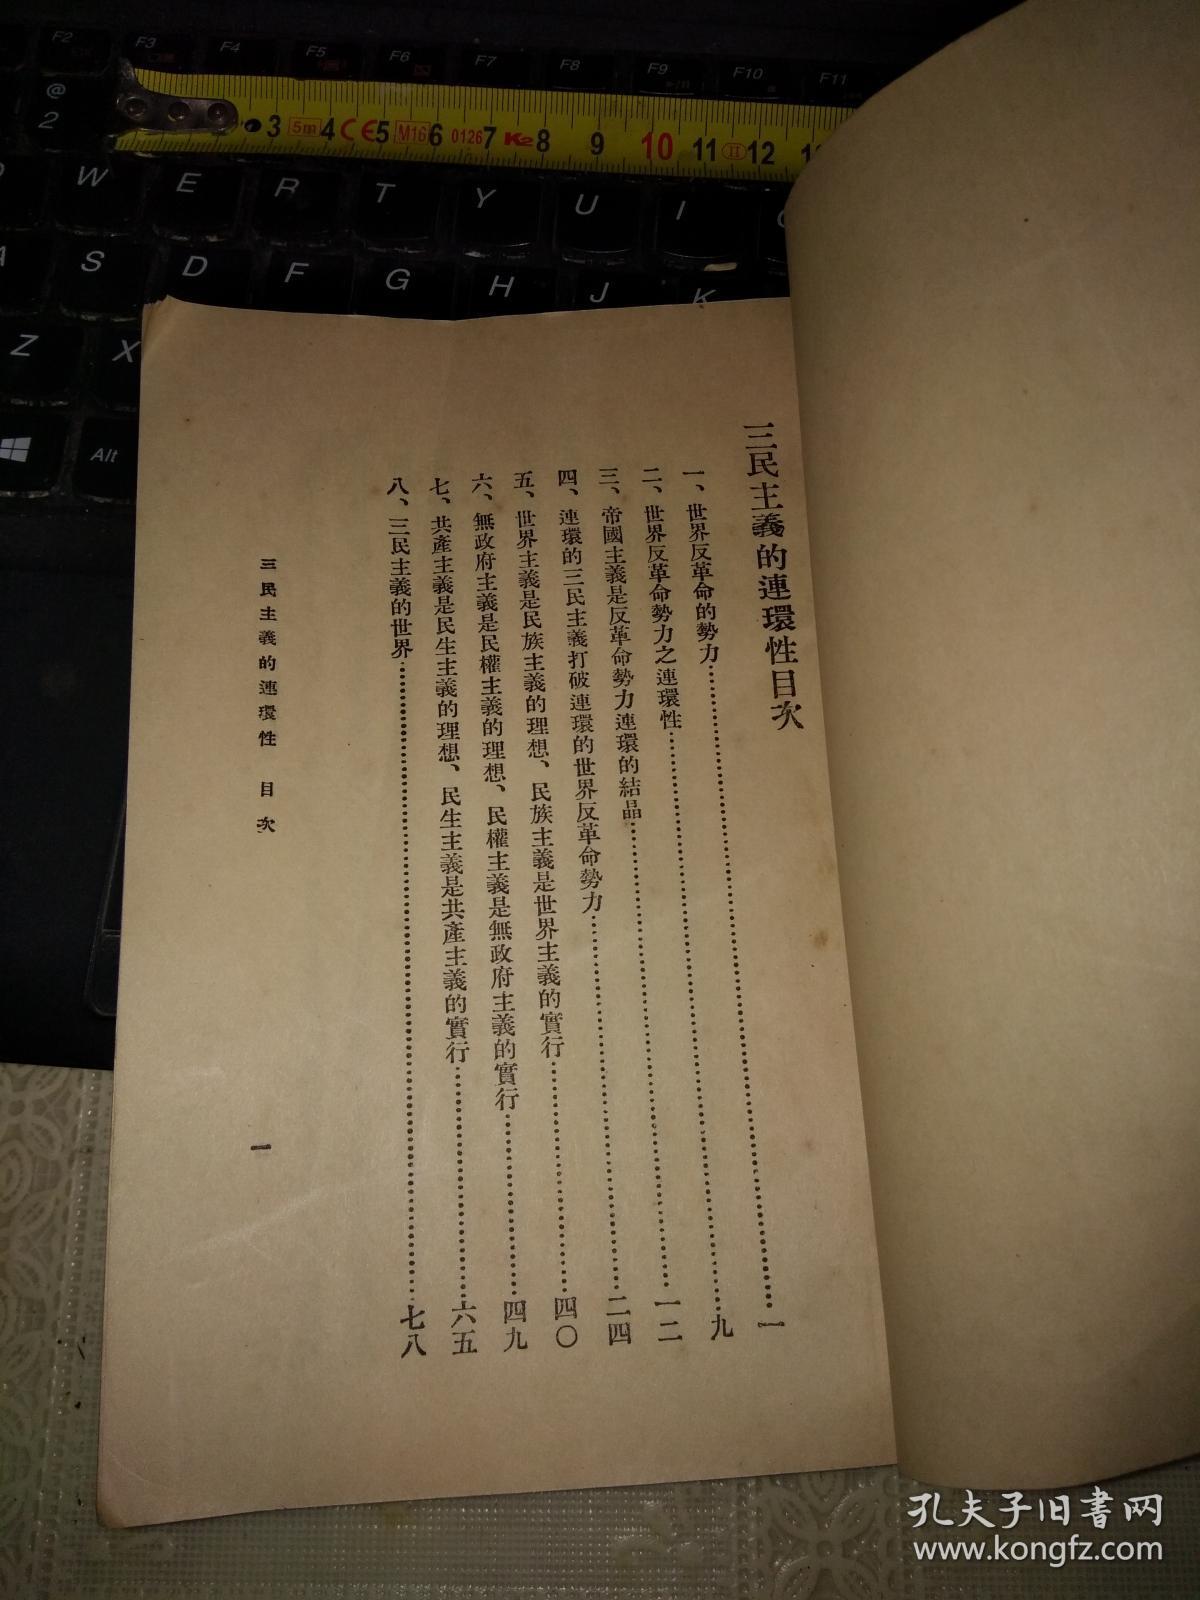 F2
F3
F4
F5
F6
F7
F8
F9
F10
F11
@
2
3 5m 4 CE 5 M16 6 0126 7 K2 8 9 10 11 II 12
W E R T Y U I
A S D F G H J K
Z X
Alt
三民主義的連環性目次
一、世界反革命的勢力……一
二、世界反革命勢力之連環性……九
三、帝國主義是反革命勢力連環的結晶……一二
四、連環的三民主義打破連環的世界反革命勢力……二四
五、世界主義是民族主義的理想、民族主義是世界主義的實行……四〇
六、無政府主義是民權主義的理想、民權主義是無政府主義的實行……四九
七、共產主義是民生主義的理想、民生主義是共產主義的實行……六五
八、三民主義的世界……七八
三民主義的連環性 目次
一
孔夫子旧書网
www.kongfz.com